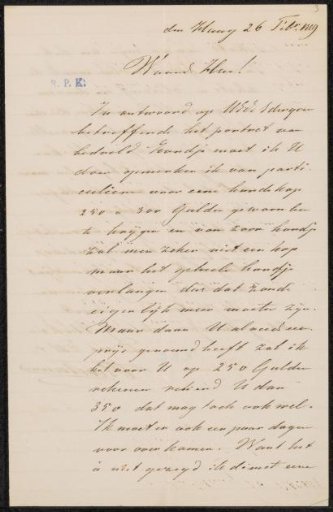 den Haag 26 Febr. 1889
3
R. P. K.
Waarde Heer!
In antwoord op
betreffende het portret van
bedoeld hondje moet ik U
doen opmerken ik van parti-
culieren voor eene hondekop
250 a 300 Gulden gewoon ben
te krijgen en van zoon hondje
zal men zeker niet een kop
maar het geheele hondje
verlangen dus dat zoude
eigenlijk meer moeten zijn.
Maar daar U al eens een
prijs genoemd heeft zal ik
het voor U op 250 Gulden
rekenen U dan
350 dat mag toch ook wel.
Ik moet er ook een paar dagen
voor over komen. Want het
is niet gezegd ik dimect eene